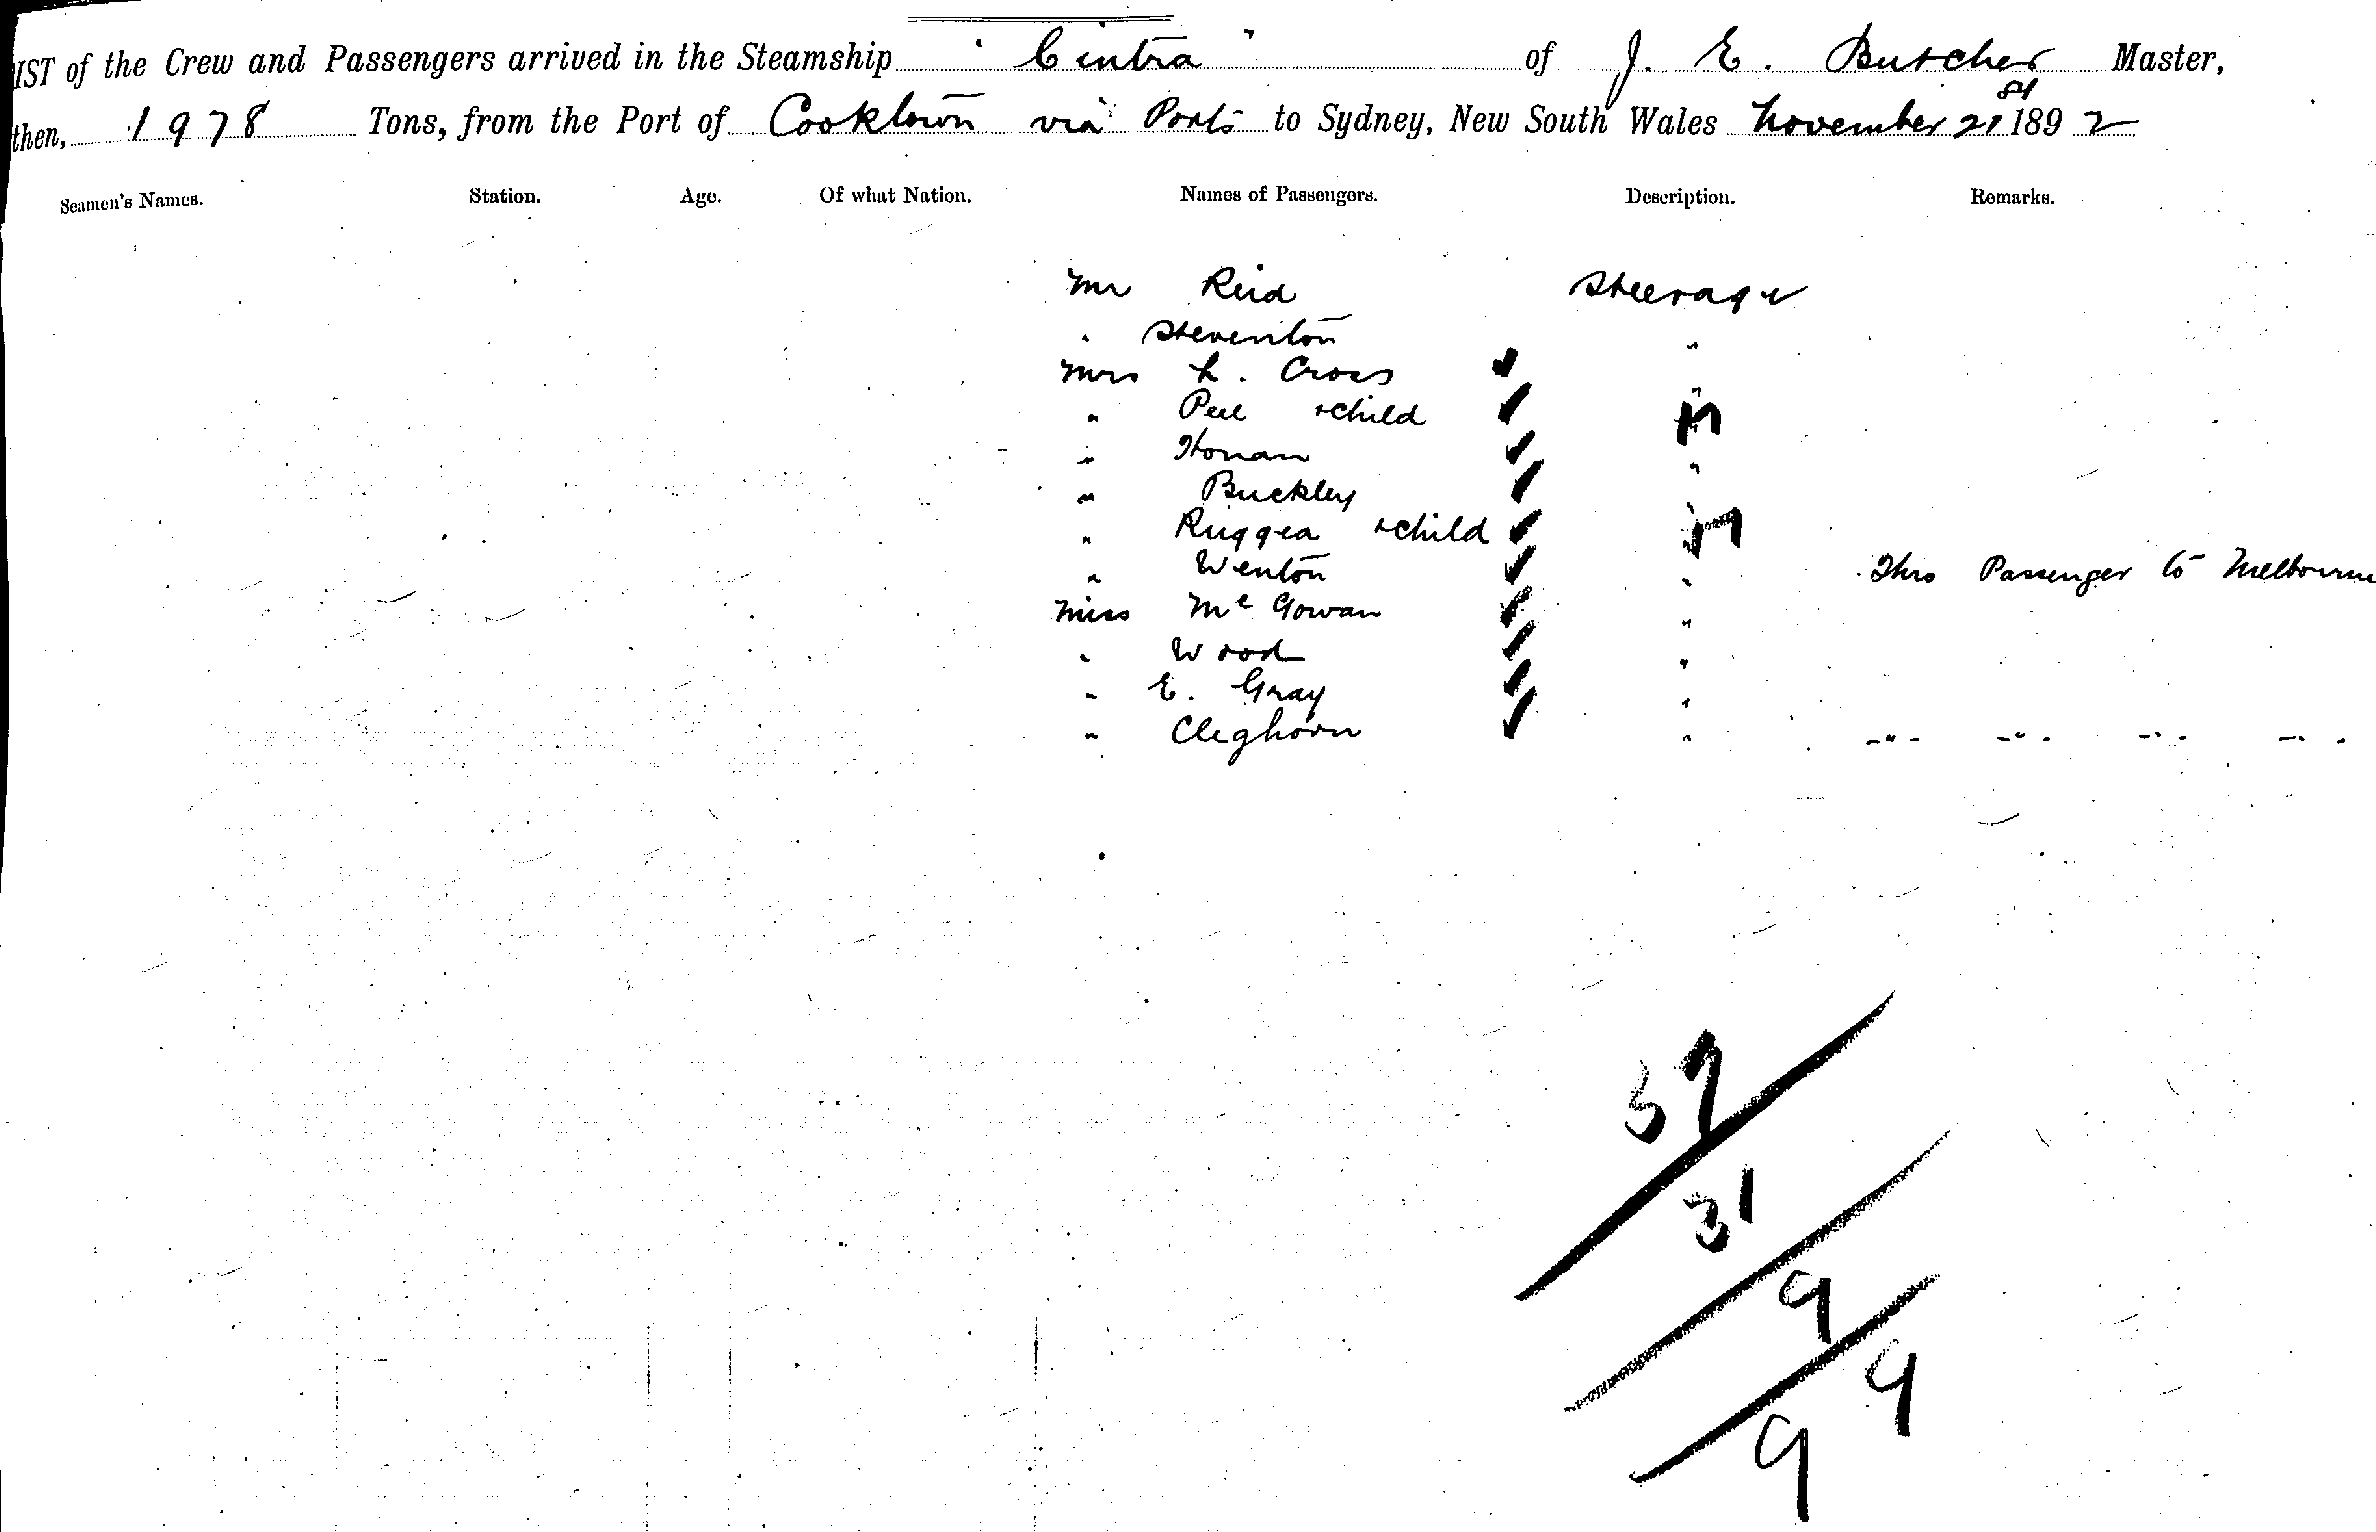 IST of the Crew and Passengers arrived in the Steamship "Cintra" of J. E. Butcher Master,
then, 1978 Tons, from the Port of Cooktown via Ports to Sydney, New South Wales November 21st 1892
Seamen's Names. Station. Age. Of what Nation. Names of Passengers. Description. Remarks.
Mr Reid Steerage
" Steventon "
Mrs L. Cross "
" Peel + child "
" Honan "
" Buckley "
" Ruggea + child "
" Wenton " Thro Passenger to Melbourne
Miss McGowan "
" Wood "
" E. Gray "
" Cleghorn " " " " "
57
31
9
9
9